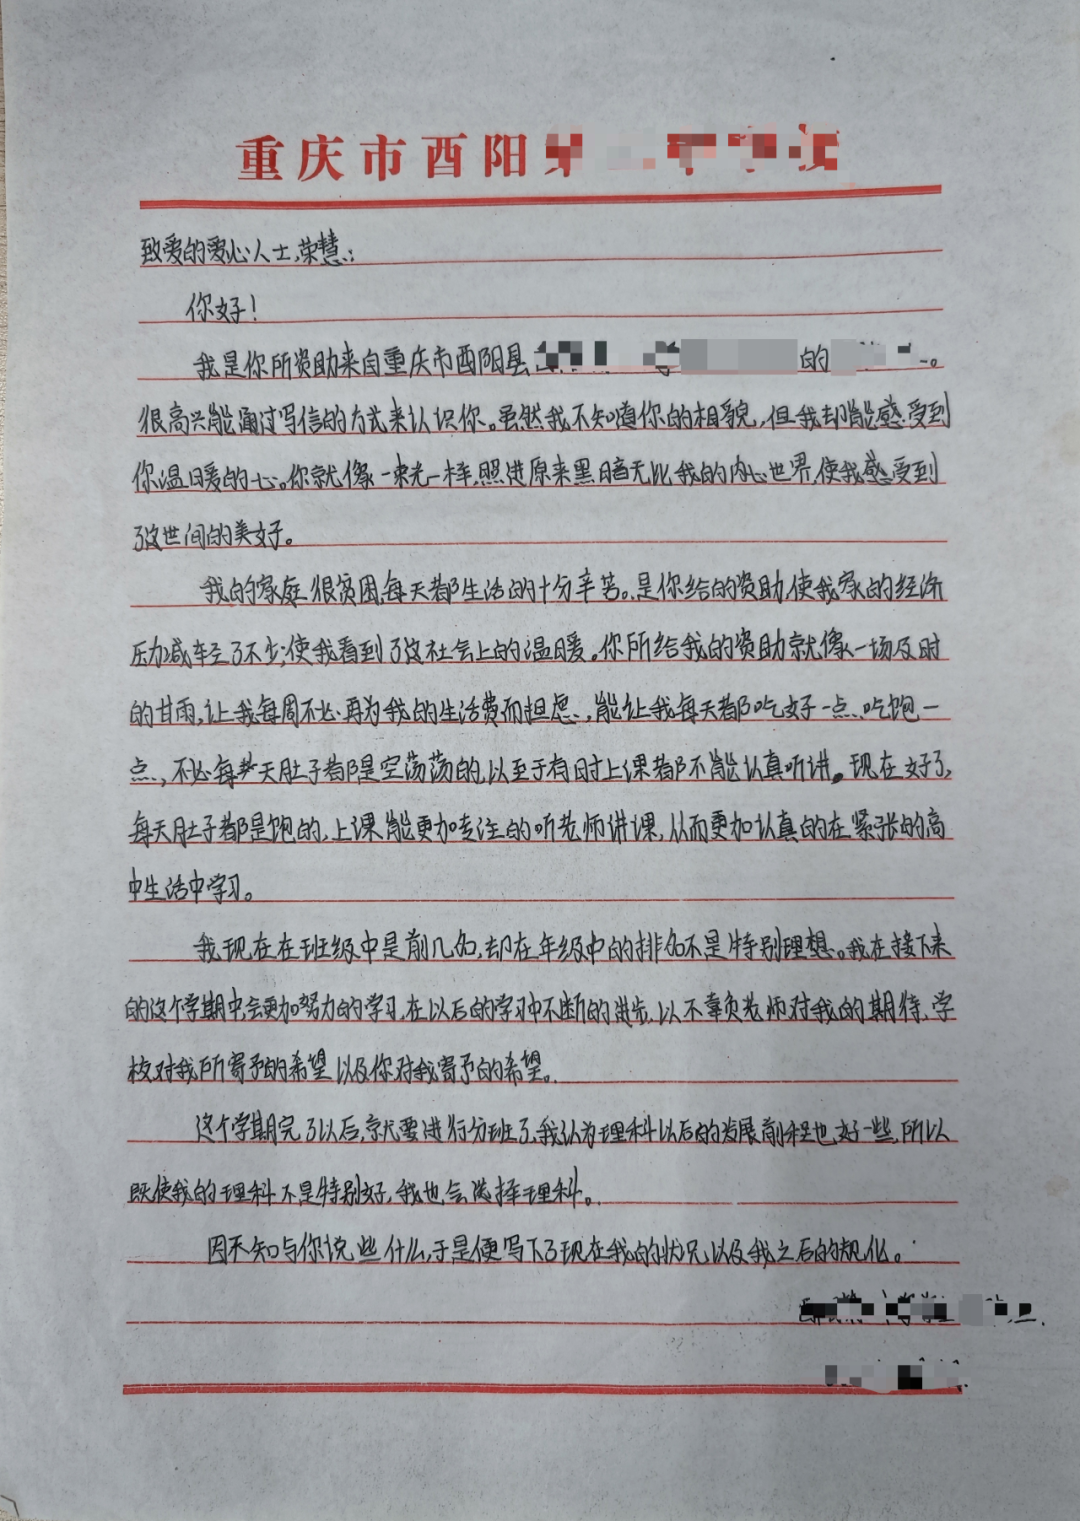 重庆市酉阳
致爱的爱心人士,荣慧:
你好!
我是你所资助来自重庆市酉阳县 的 。
很高兴能通过写信的方式来认识你。虽然我不知道你的相貌,但我却能感受到
你温暖的心。你就像一束光一样,照进原来黑暗无比我的内心世界,使我感受到
了这世间的美好。
我的家庭很贫困,每天都生活的十分辛苦。是你给的资助,使我家的经济
压力减轻了不少;使我看到了这社会上的温暖。你所给我的资助就像一场及时
的甘雨,让我每周不必再为我的生活费而担虑,能让我每天都吃好一点、吃饱一
点,不必每天肚子都是空荡荡的,以至于有时上课都不能认真听讲。现在好了,
每天肚子都是饱的,上课能更加专注的听老师讲课,从而更加认真的在紧张的高
中生活中学习。
我现在在班级中是前几名,却在年级中的排名不是特别理想。我在接下来
的这个学期中,会更加努力的学习,在以后的学习中不断的进步,以不辜负老师对我的期待,学
校对我所寄予的希望以及你对我寄予的希望。
这个学期完了以后,就要进行分班了,我认为理科以后的发展前程也好一些,所以
既使我的理科不是特别好,我也会选择理科。
因不知与你说些什么,于是便写下了现在我的状况以及我之后的规化。